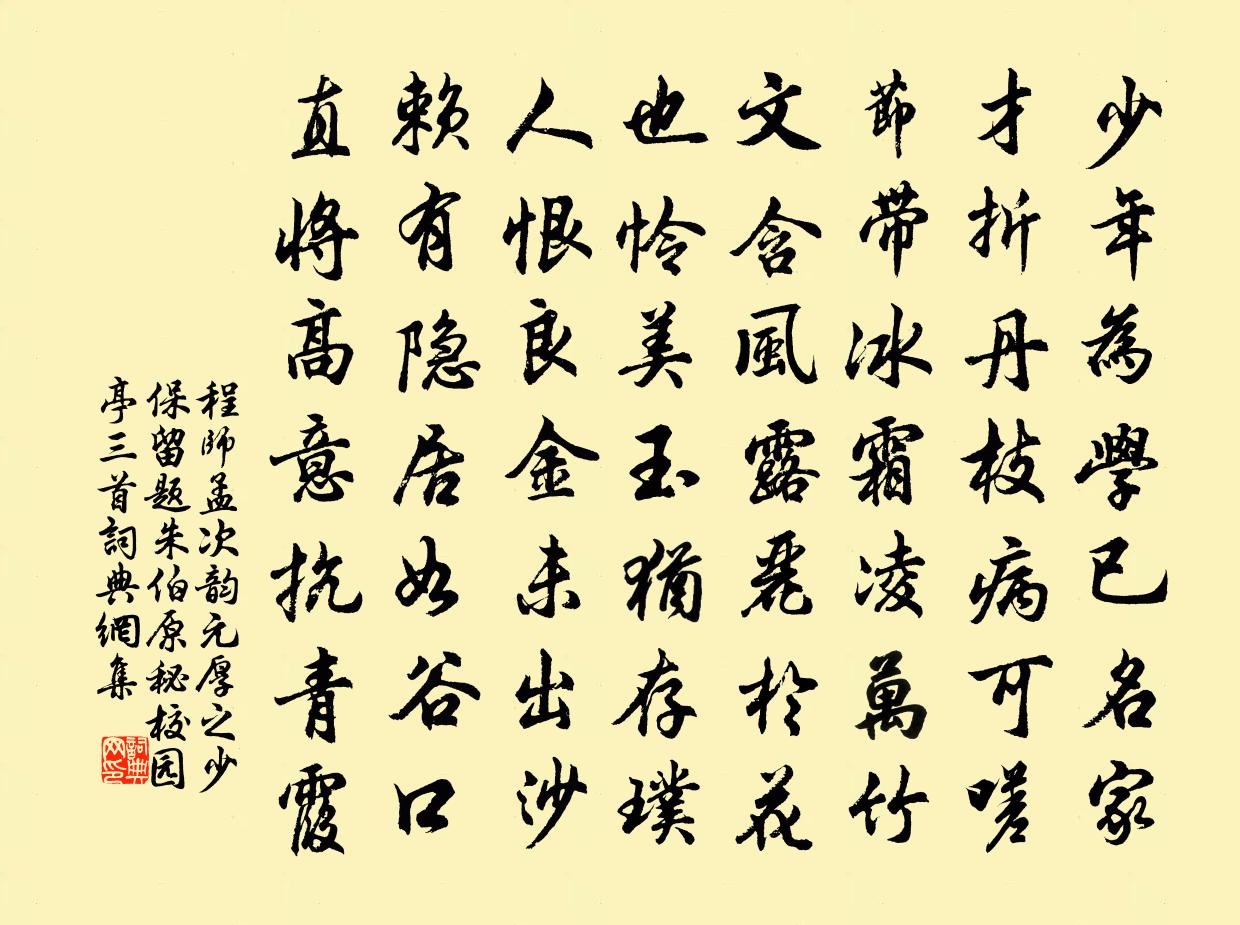 少年為學已名家
才折丹枝病可嗟
節帶冰霜凌萬竹
文含風露麗於花
也怜美玉猶存璞
人恨良金未出沙
赖有隐居如谷口
直將高意抗青霞
程師孟次韵元厚之少
保留题朱伯原秘校园
亭三首詞典網集
詞典
网印